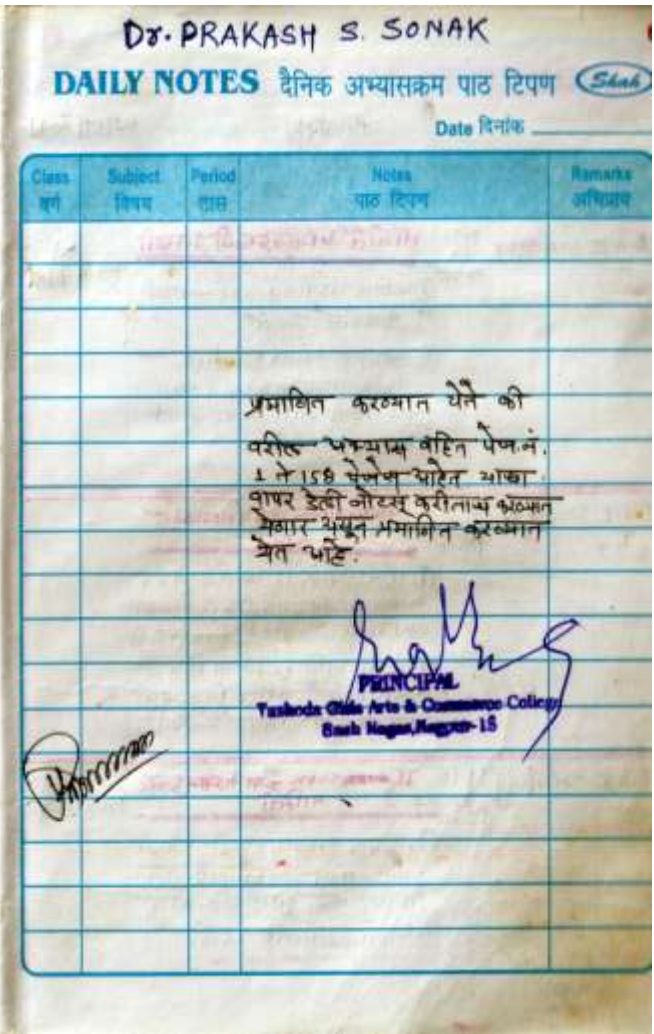 Dr. PRAKASH S. SONAK
DAILY NOTES दैनिक अभ्यासक्रम पाठ टिपण Shah
Date दिनांक
Class Subject Period Notes Remarks
वर्ग विषय तास पाठ टिपण अभिप्राय
प्रमाणित करण्यात येते की
वरील पेज नं.
1 ते 158 पेजेस आहेत याचा
वापर डेली नोटस् करीताच करण्यात
येणार असून प्रमाणित करण्यात
येत आहे.
PRINCIPAL
Yashoda Girls Arts & Commerce College
Sneh Nagar, Nagpur-15